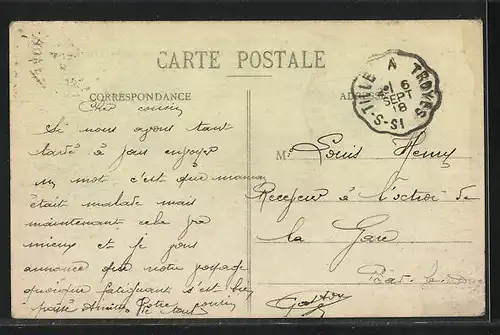 CARTE POSTALE
CORRESPONDANCE
Cher cousin
Si nous avons tant
tardé à vous envoyer
un mot c'est que maman
était malade mais
maintenant cela va
mieux et je vous
annonce que notre
quoique fatiguant s'est bien
passé Votre cousin
A TROYES
6
SEPT
18
M. Louis Henry
Receveur à l'octroi de
la Gare
Bar-le-Duc
Gaston